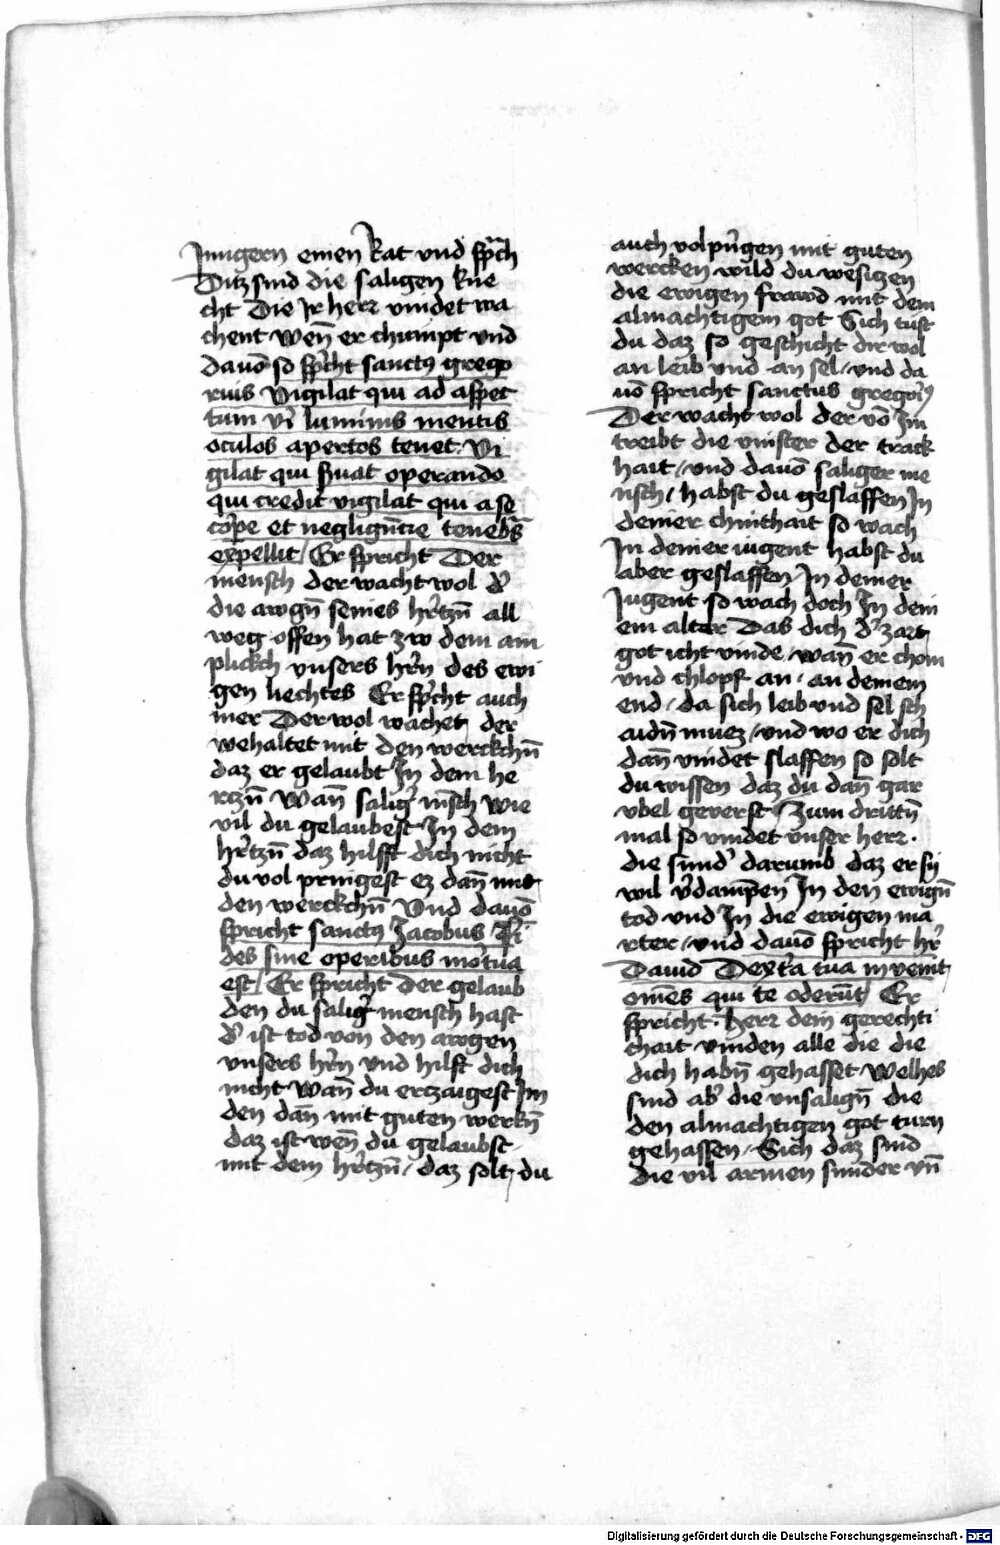 Jungern einen Rat vnd sp̃ch
Ditz sind die saligen kne
cht Die Jr herr vindet wa
chent wen̄ er chumpt vnd
dauō so sp̃cht sanctꝯ grego
rius Vigilat qui ad aspec
tum vi᷑ luminis mentis
oculos apertos tenet. Vi
gilat qui s᷑uat operando
qui credit vigilat qui a se
cor᷑pe et neglign̄cie teneb᷑s
expellit / Er spricht Der
mensch der wacht wol d᷑
die awgn̄ seines h᷑rtzn̄ all
weg offen hat zw dem an
plickch vnsers h᷑rn des ewi
gen liechtes Er sp̃cht auch
mer Der wol wachet / der
wehaltet mit den werckchn̄
daz er gelaubt In dem he
rczn̄ Wan̄ salig᷑ m̄sch wie
vil du gelaubest In dem
h᷑rtzn̄ daz hilfft dich nicht
du vol pringest ez dan̄ mit
den werckchn̄ Vnd dauō
spricht sanctꝯ Jacobus Fi
des sine operibus mo᷑tua
est / Er spricht Der gelaub
den du salig᷑ mensch hast
d᷑ ist tod von den awgen
vnsers h᷑rn vnd hilft dich
nicht wan̄ du erczaigest Im
den dan̄ mit guten werkn̄
daz ist wen̄ du gelaubst
mit dem h᷑rtzn̄ / daz solt du
auch volp᷑ngen mit guten
wercken wild du wesiczen
die ewigen frawd mit dem
almachtigem got Sich tust
du daz so geschicht dir wol
an leib vnd an sel / vnd da
uō spricht sanctus gregor᷑ꝯ
Der wacht wol der vō Im
treibt die vinster der track
hait / vnd dauō saliger me
nsch / habst du geslaffen In
deiner chinthait so wach
In deiner iugent habst du
aber geslaffen In deiner
Jugent so wach doch In dein
em alter Das dich d᷑ zart
got icht vinde / wan̄ er chom
vnd chlopf an / an deinem
end / da sich leib vnd sel sch
aidn̄ muez / vnd wo er dich
dan̄ vindet slaffen so solt
du wissen daz du dan̄ gar
vbel geverst / Zum drittn̄
mal so vindet vnser herr .
die sund᷑ darumb daz er sy
wil v᷑dampn̄en In den ewign̄
tod vnd In die ewigen ma
rter / vnd dauō spricht h᷑r
Dauid Dext᷑a tua inveniit
om̄es qui te oder̄ut / Er
spricht . herr dein gerechti
chait vinden alle die die
dich habn̄ gehasset Welhes
sind ab᷑ die vnsalign̄ die
den almachtigen got turn
gehassen / Sich daz sind
die vil armen sunder vn̄
Digitalisierung gefördert durch die Deutsche Forschungsgemeinschaft - DFG